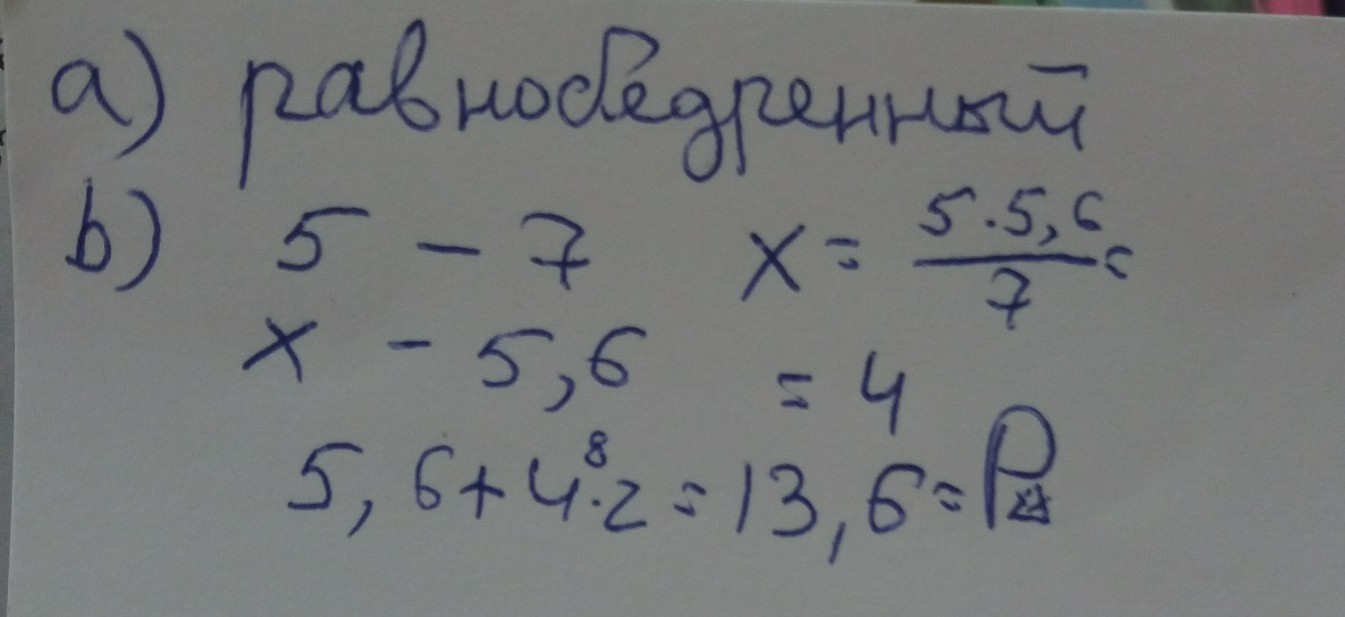 а) равнобедренный
b) 5 - 7 x = 5·5,6 / 7 =
x - 5,6 = 4
5,6+4·2=13,6=P
8